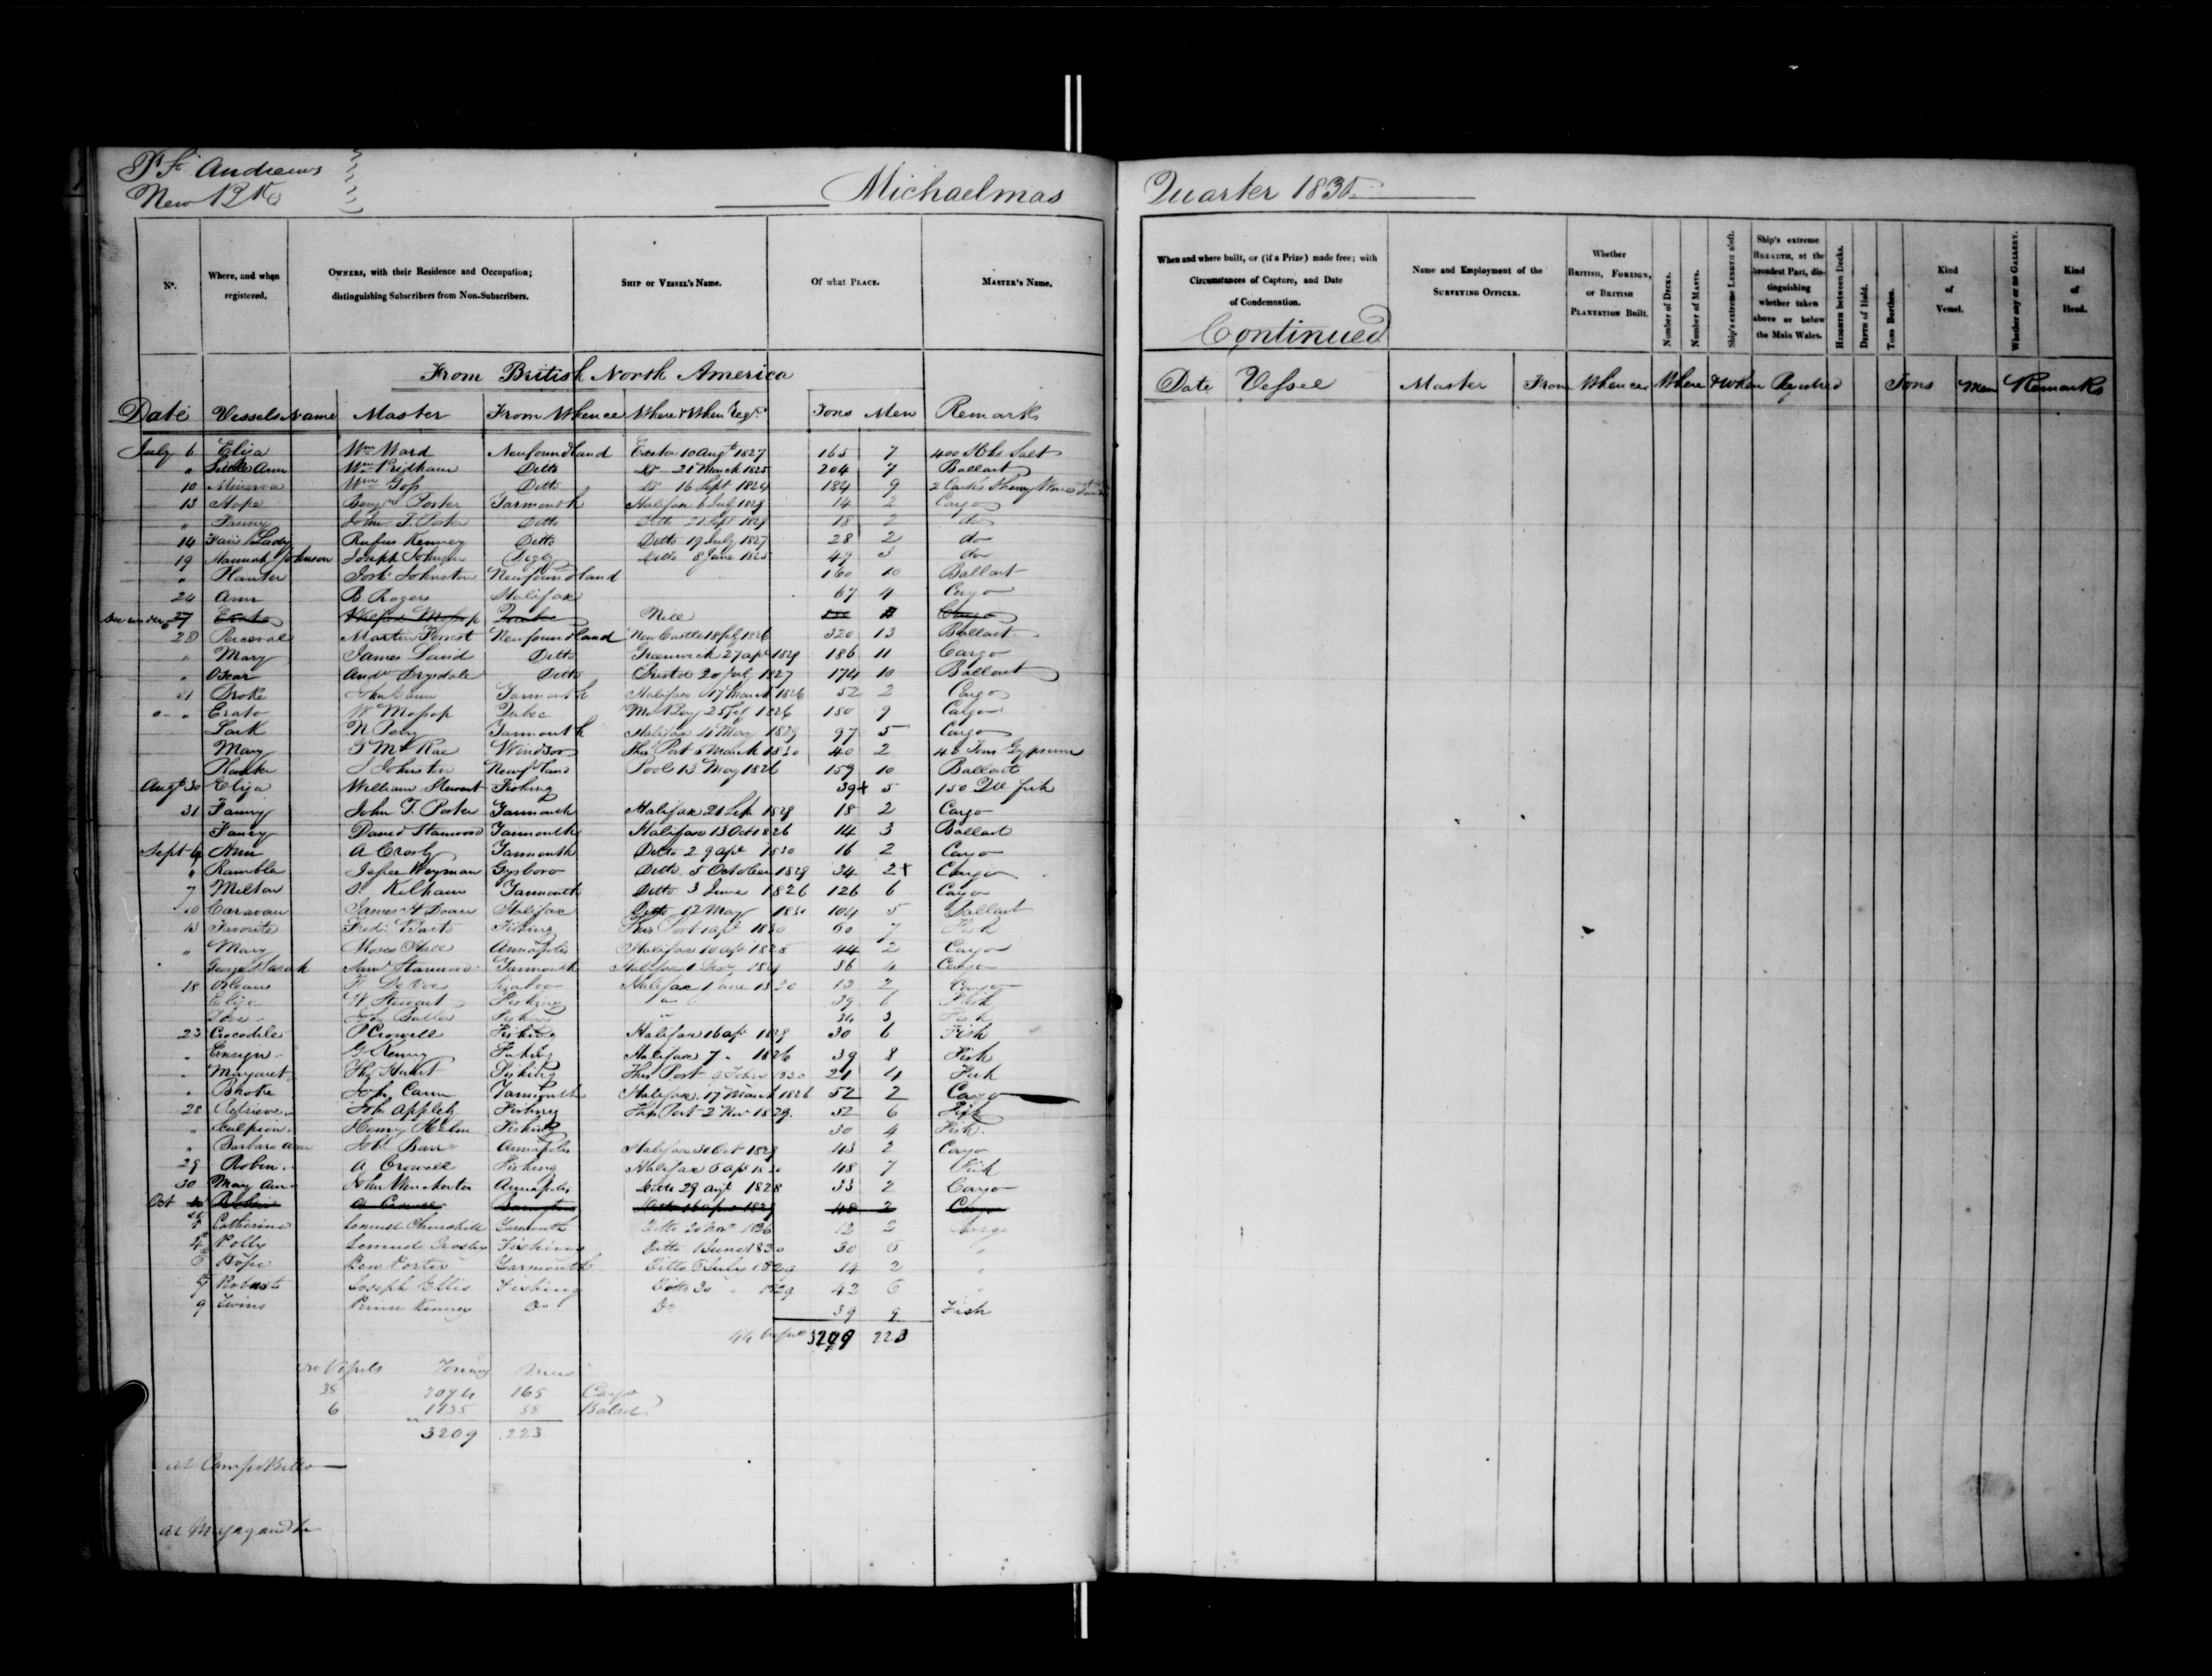 St Andrews
New Bk
Michaelmas
Quarter 1830
Nº.
Where, and when registered.
OWNERS, with their Residence and Occupation; distinguishing Subscribers from Non-Subscribers.
SHIP OR VESSEL'S NAME.
Of what PLACE.
MASTER'S NAME.
When and where built, or (if a Prize) made free; with Circumstances of Capture, and Date of Condemnation.
Continued
Name and Employment of the SURVEYING OFFICER.
Whether BRITISH, FOREIGN, or BRITISH PLANTATION Built.
Number of DECKS.
Number of MASTS.
Ship's extreme LENGTH aloft.
Ship's extreme BREADTH, at the broadest Part, distinguishing whether taken above or below the Main Wales.
HEIGHTH between Decks.
DEPTH of Hold.
TONS Burthen.
Kind of Vessel.
Whether any or no GALLERY.
Kind of Head.
From British North America
Date Vessels Name Master From Whence Where & When Regd Tons Men Remarks
Date Vessel Master From Whence Where & When Registered Tons Men Remarks
July 6 Eliza Wm Ward Newfoundland Exeter 10 Augt 1827 165 7 400 Hhs Salt
" Little Ann Wm Pridham Ditto Do 21 March 1825 204 7 Ballast
10 Minerva Wm Goss Ditto Do 16 Sept 1824 184 9 2 Casks Sherry Wine
13 Hope Benjn Porter Yarmouth Halifax 6 July 1829 14 2 Cargo
" Fanny John T. Porter Ditto Ditto 21 Sept 1829 18 2 do
14 Fair Lady Rufus Kenney Ditto Ditto 19 July 1827 28 2 do
19 Hannah Johnson Joseph Johnson Digby Ditto 8 June 1825 49 3 do
" Planter Josh Johnston Newfoundland 160 10 Ballast
24 Ann B Rogers Halifax 67 4 Cargo
27 Erato Mossop Quebec Nill Cargo
28 Perceval Martin Forrest Newfoundland New Castle 18 July 1826 320 13 Ballast
" Mary James Laird Ditto Greenwich 27 apl 1829 186 11 Cargo
" Oscar Andw Drysdale Ditto Bristol 20 July 1827 174 10 Ballast
31 Broke Yarmouth Halifax 17 March 1826 52 2 Cargo
" Erato W Mossop Quebec 1826 180 9 Cargo
Lark N Perry Yarmouth Halifax 4 May 1829 97 5 Cargo
Mary McRae Windsor This Port 5 March 1830 40 2 40 Tons Gypsum
Planter J Johnston Newfdland Poole 13 May 1826 159 10 Ballast
Augt 30 Eliza William Stewart Fishing 39 5 150 Qtl fish
31 Fanny John T. Porter Yarmouth Halifax 21 Sep 1829 18 2 Cargo
Fancy David Stanwood Yarmouth Halifax 13 Oct 1826 14 3 Ballast
Sept 4 Ann A Crosby Yarmouth Ditto 29 apl 1830 16 2 Cargo
" Rambler Jesse Weyman Gysboro Ditto 5 October 1829 34 2 Cargo
7 Milton S. Kelham Yarmouth Ditto 3 June 1826 126 6 Cargo
10 Caravan James H Doan Halifax Ditto 12 May 1830 104 5 Ballast
13 Favorite Fredk Fishing This Port 1 apl 1830 60 7 Fish
" Mary Moses Annapolis Halifax 10 apl 1828 44 2 Cargo
George & Sarah Saml Stanwood Yarmouth Halifax 36 4 Cargo
18 Orleans Halifax 1 June 1830 13 2 Cargo
Eliza W. Stewart Fishing 39 6 Fish
Dove John Butler Fishing 24 3 Fish
23 Crocodile P Crowell Fishing Halifax 16 apl 1829 30 6 Fish
" Ensign G Kenny Fishing Halifax 7 " 1826 39 8 Fish
" Margaret Thos Hunt Fishing This Port 9 Feby 1830 21 4 Fish
" Broke John Cann Yarmouth Halifax 17 March 1826 52 2 Cargo
28 Retrieve John Appleby Fishing This Port 2 Nov 1829 52 6 Fish
" Henry Fishing 30 4 Fish
" Barbara Ann John Barr Annapolis Halifax 30 Oct 1829 43 2 Cargo
29 Robin A Crowell Fishing Halifax 6 apl 1830 48 7 Fish
30 Mary Ann John Annapolis Ditto 29 Augt 1828 33 2 Cargo
Oct Robin A Crowell Barrington 48 2 Cargo
Catherine Lemuel Churchill Yarmouth Ditto 20 12 2 Cargo
4 Polly Lemuel Crosby Fishing Ditto 1 June 1830 30 6 "
6 Hope Ben Porter Yarmouth Ditto 6 July 1829 14 2 "
7 Robust Joseph Ellis Fishing Ditto 30 " 1829 42 6 "
9 Twins Prince Kenney Do Do 39 9 Fish
44 Vessels 3209 223
No Vessels Tonnage Men
38 2074 165 Cargo
6 1135 58 Balast
3209 223
at Campo Bello
at Magaguadavic